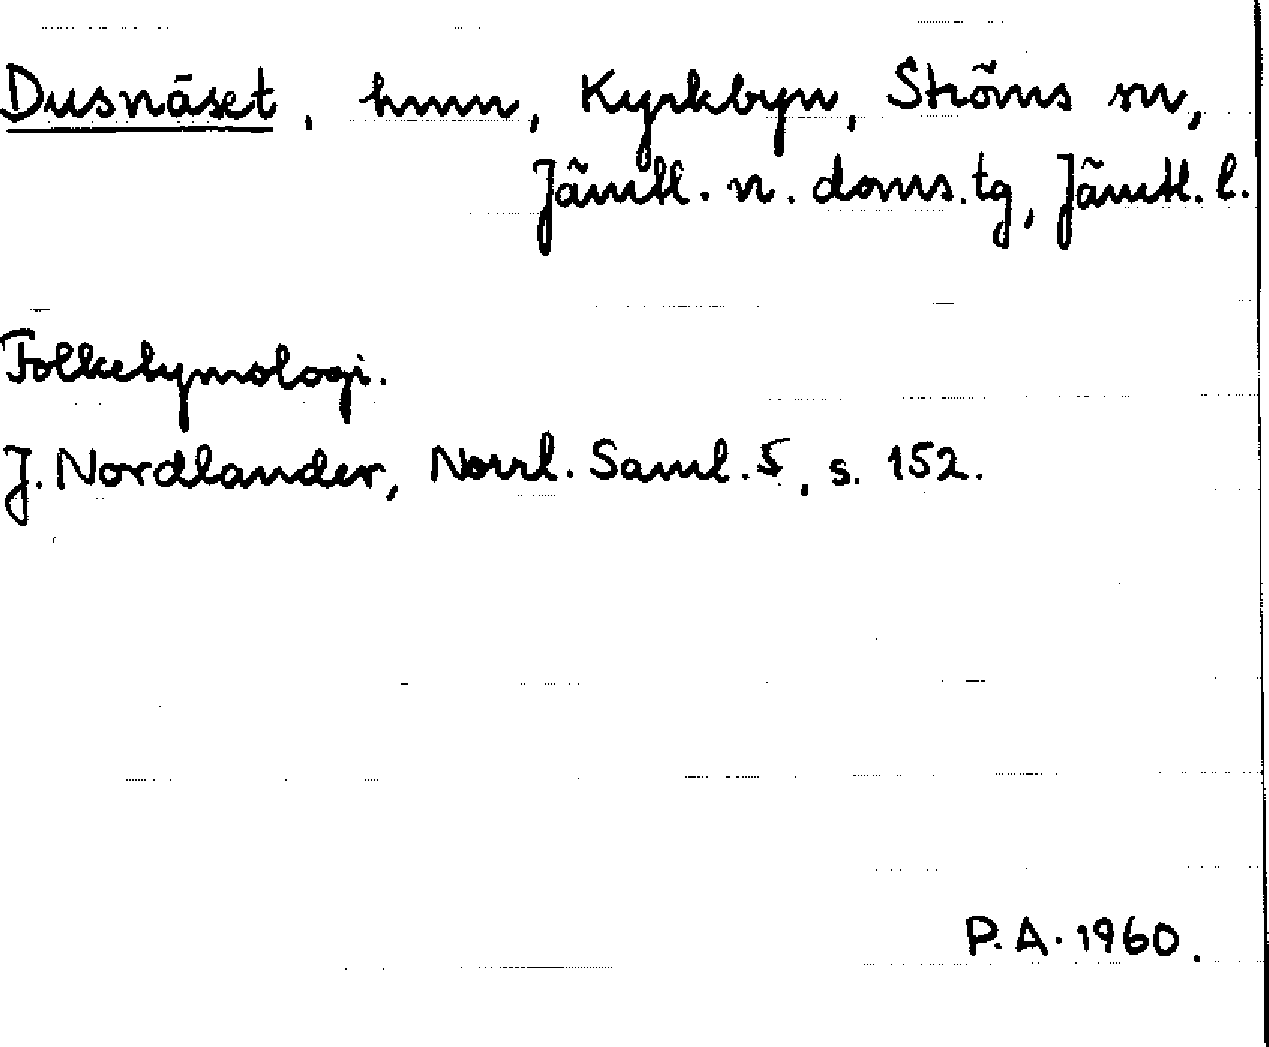 Dusnäset, hmn, Kyrkbyn, Ströms sn,
Jämtl. n. doms.tg, Jämtl. l.
Folketymologi.
J. Nordlander, Norrl. Saml. 5, s. 152.
P.A. 1960.